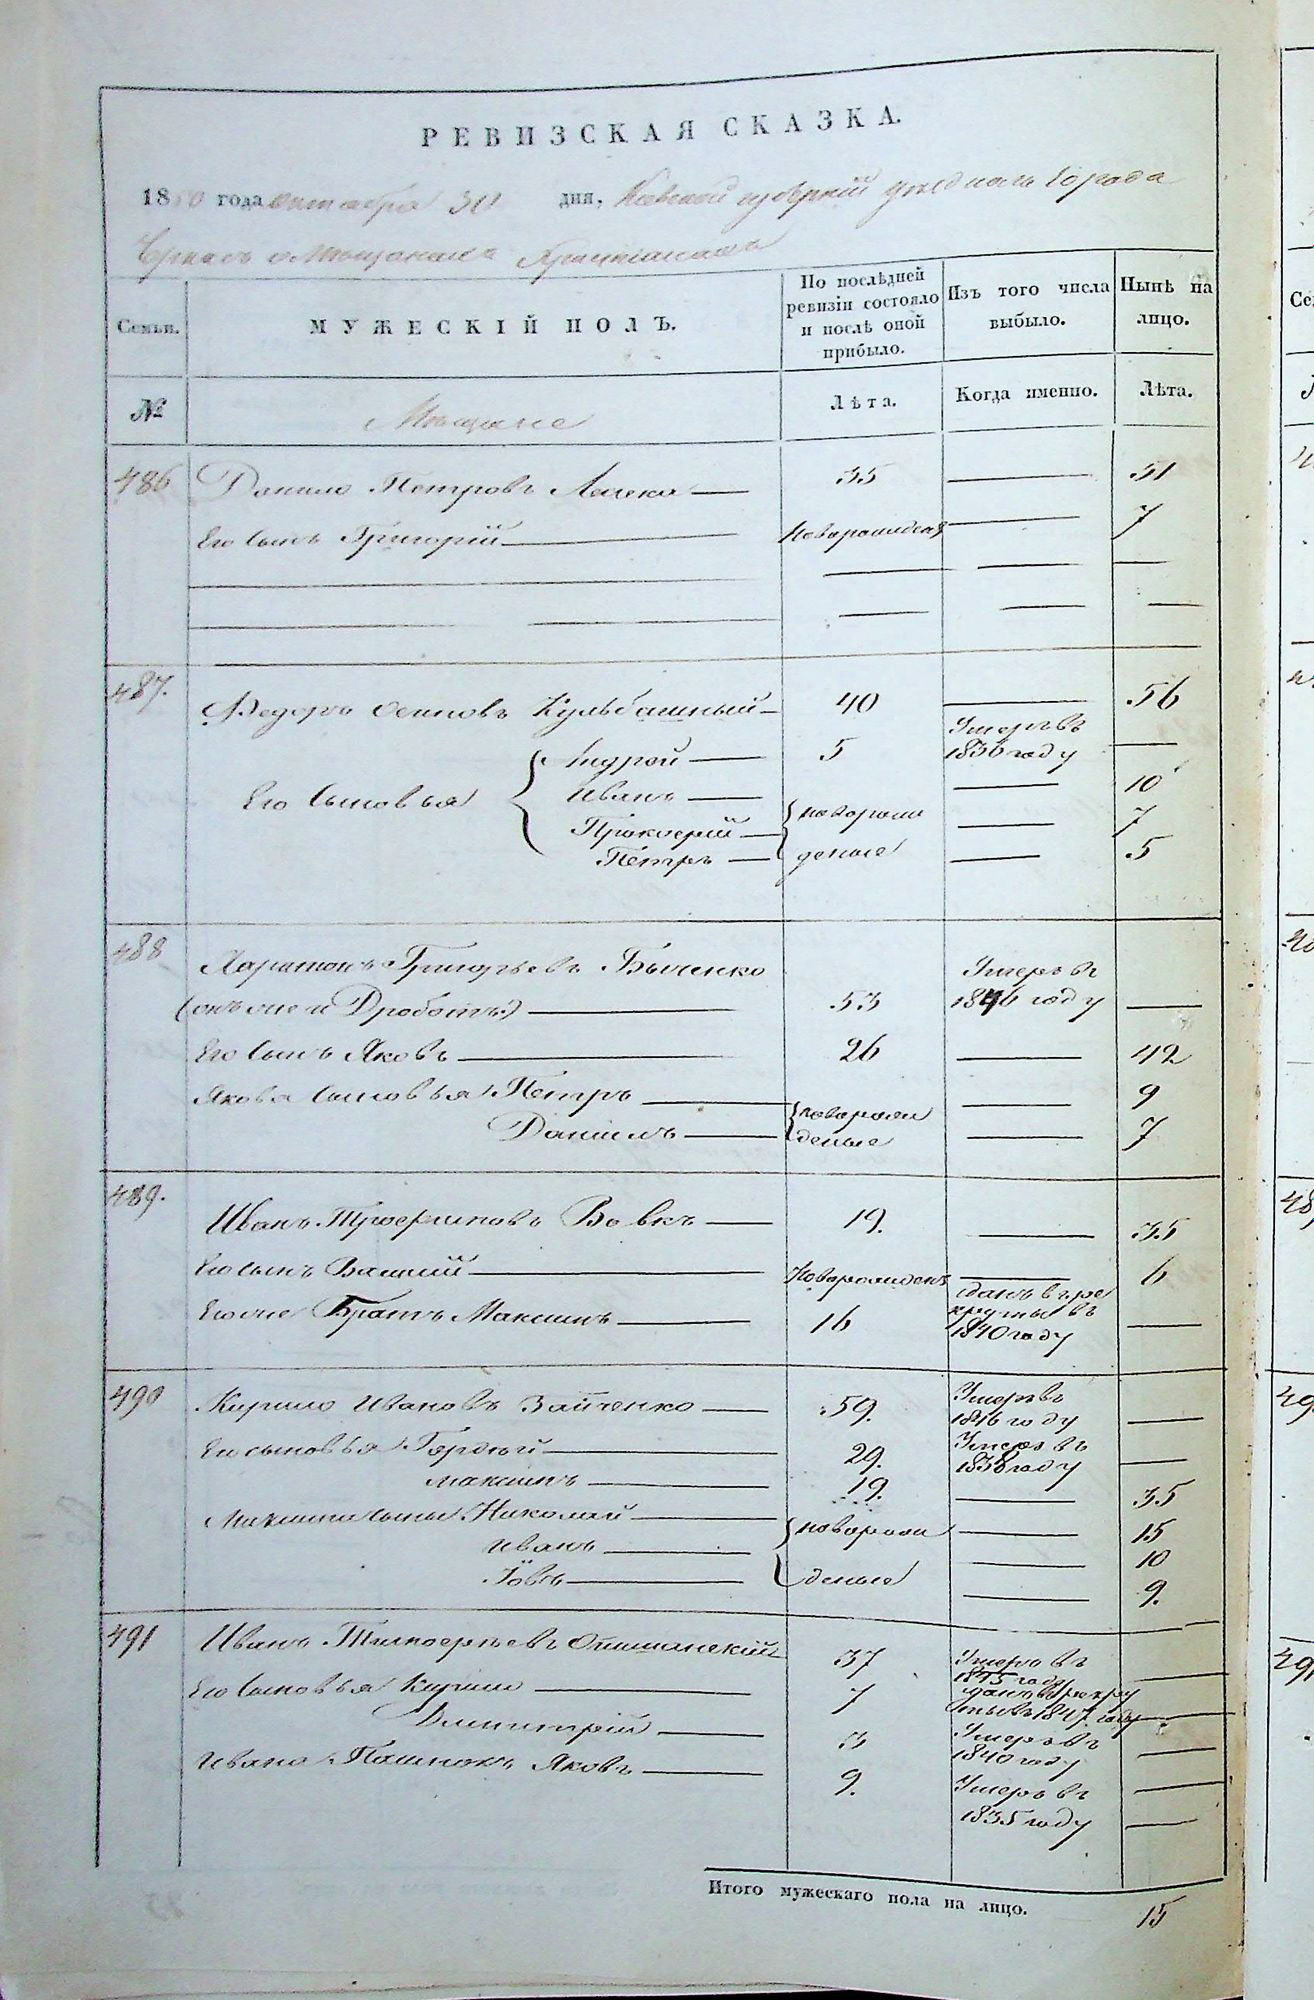 РЕВИЗСКАЯ СКАЗКА.
1850 года октября 30 дня, Кіевской губерніи уезднаго Города
Черкасъ о Мещанахъ Христіанахъ
Семьи. МУЖЕСКІЙ ПОЛЪ. По послѣдней ревизіи состояло и послѣ оной прибыло. Изъ того числа выбыло. Нынѣ на лицо.
№ Мещане Лѣта. Когда именно. Лѣта.
486 Данило Петровъ — 35 — 51
Его Сынъ Григорій — Новорожденъ — 7
487. Федоръ Осиповъ Кульбашный — 40 — 56
Его Сыновья { Андрей — 5 Умеръ въ 1836 году —
Иванъ — { новорож — 10
Прокофій — — 7
Петръ — денные — 5
488 Харитонъ Григорьевъ Быченко
(онъ же и Дроботъ) — 53 Умеръ въ 1846 году —
Его Сынъ Яковъ — 26 — 42
Якова Сыновья Петръ — { новорож — 9
Даніилъ — денные — 7
489. Иванъ Трофимовъ Вовкъ — 19. — 35
Его сынъ Василій — Новорожденъ — 6
Его же Братъ Максимъ — 16 сданъ въ рекруты въ 1840 году —
490 Кирило Ивановъ Зайченко — 59. Умеръ въ 1846 году —
Его сыновья Гордѣй — 29. Умеръ въ 1838 году —
Максимъ — 19. — 35
Максима Сыны Николай — { новорож — 15
Иванъ — — 10
Іовъ — денные — 9.
491 Иванъ Тимофеевъ Опишанскій — 37 Умеръ въ 1845 году —
Его Сыновья Кирило — 7 сданъ в рекруты въ 1847 году —
Дмитрій — 3 Умеръ въ 1840 году —
Ивана Пасынокъ Яковъ — 9. Умеръ въ 1835 году —
Итого мужескаго пола на лицо. 15